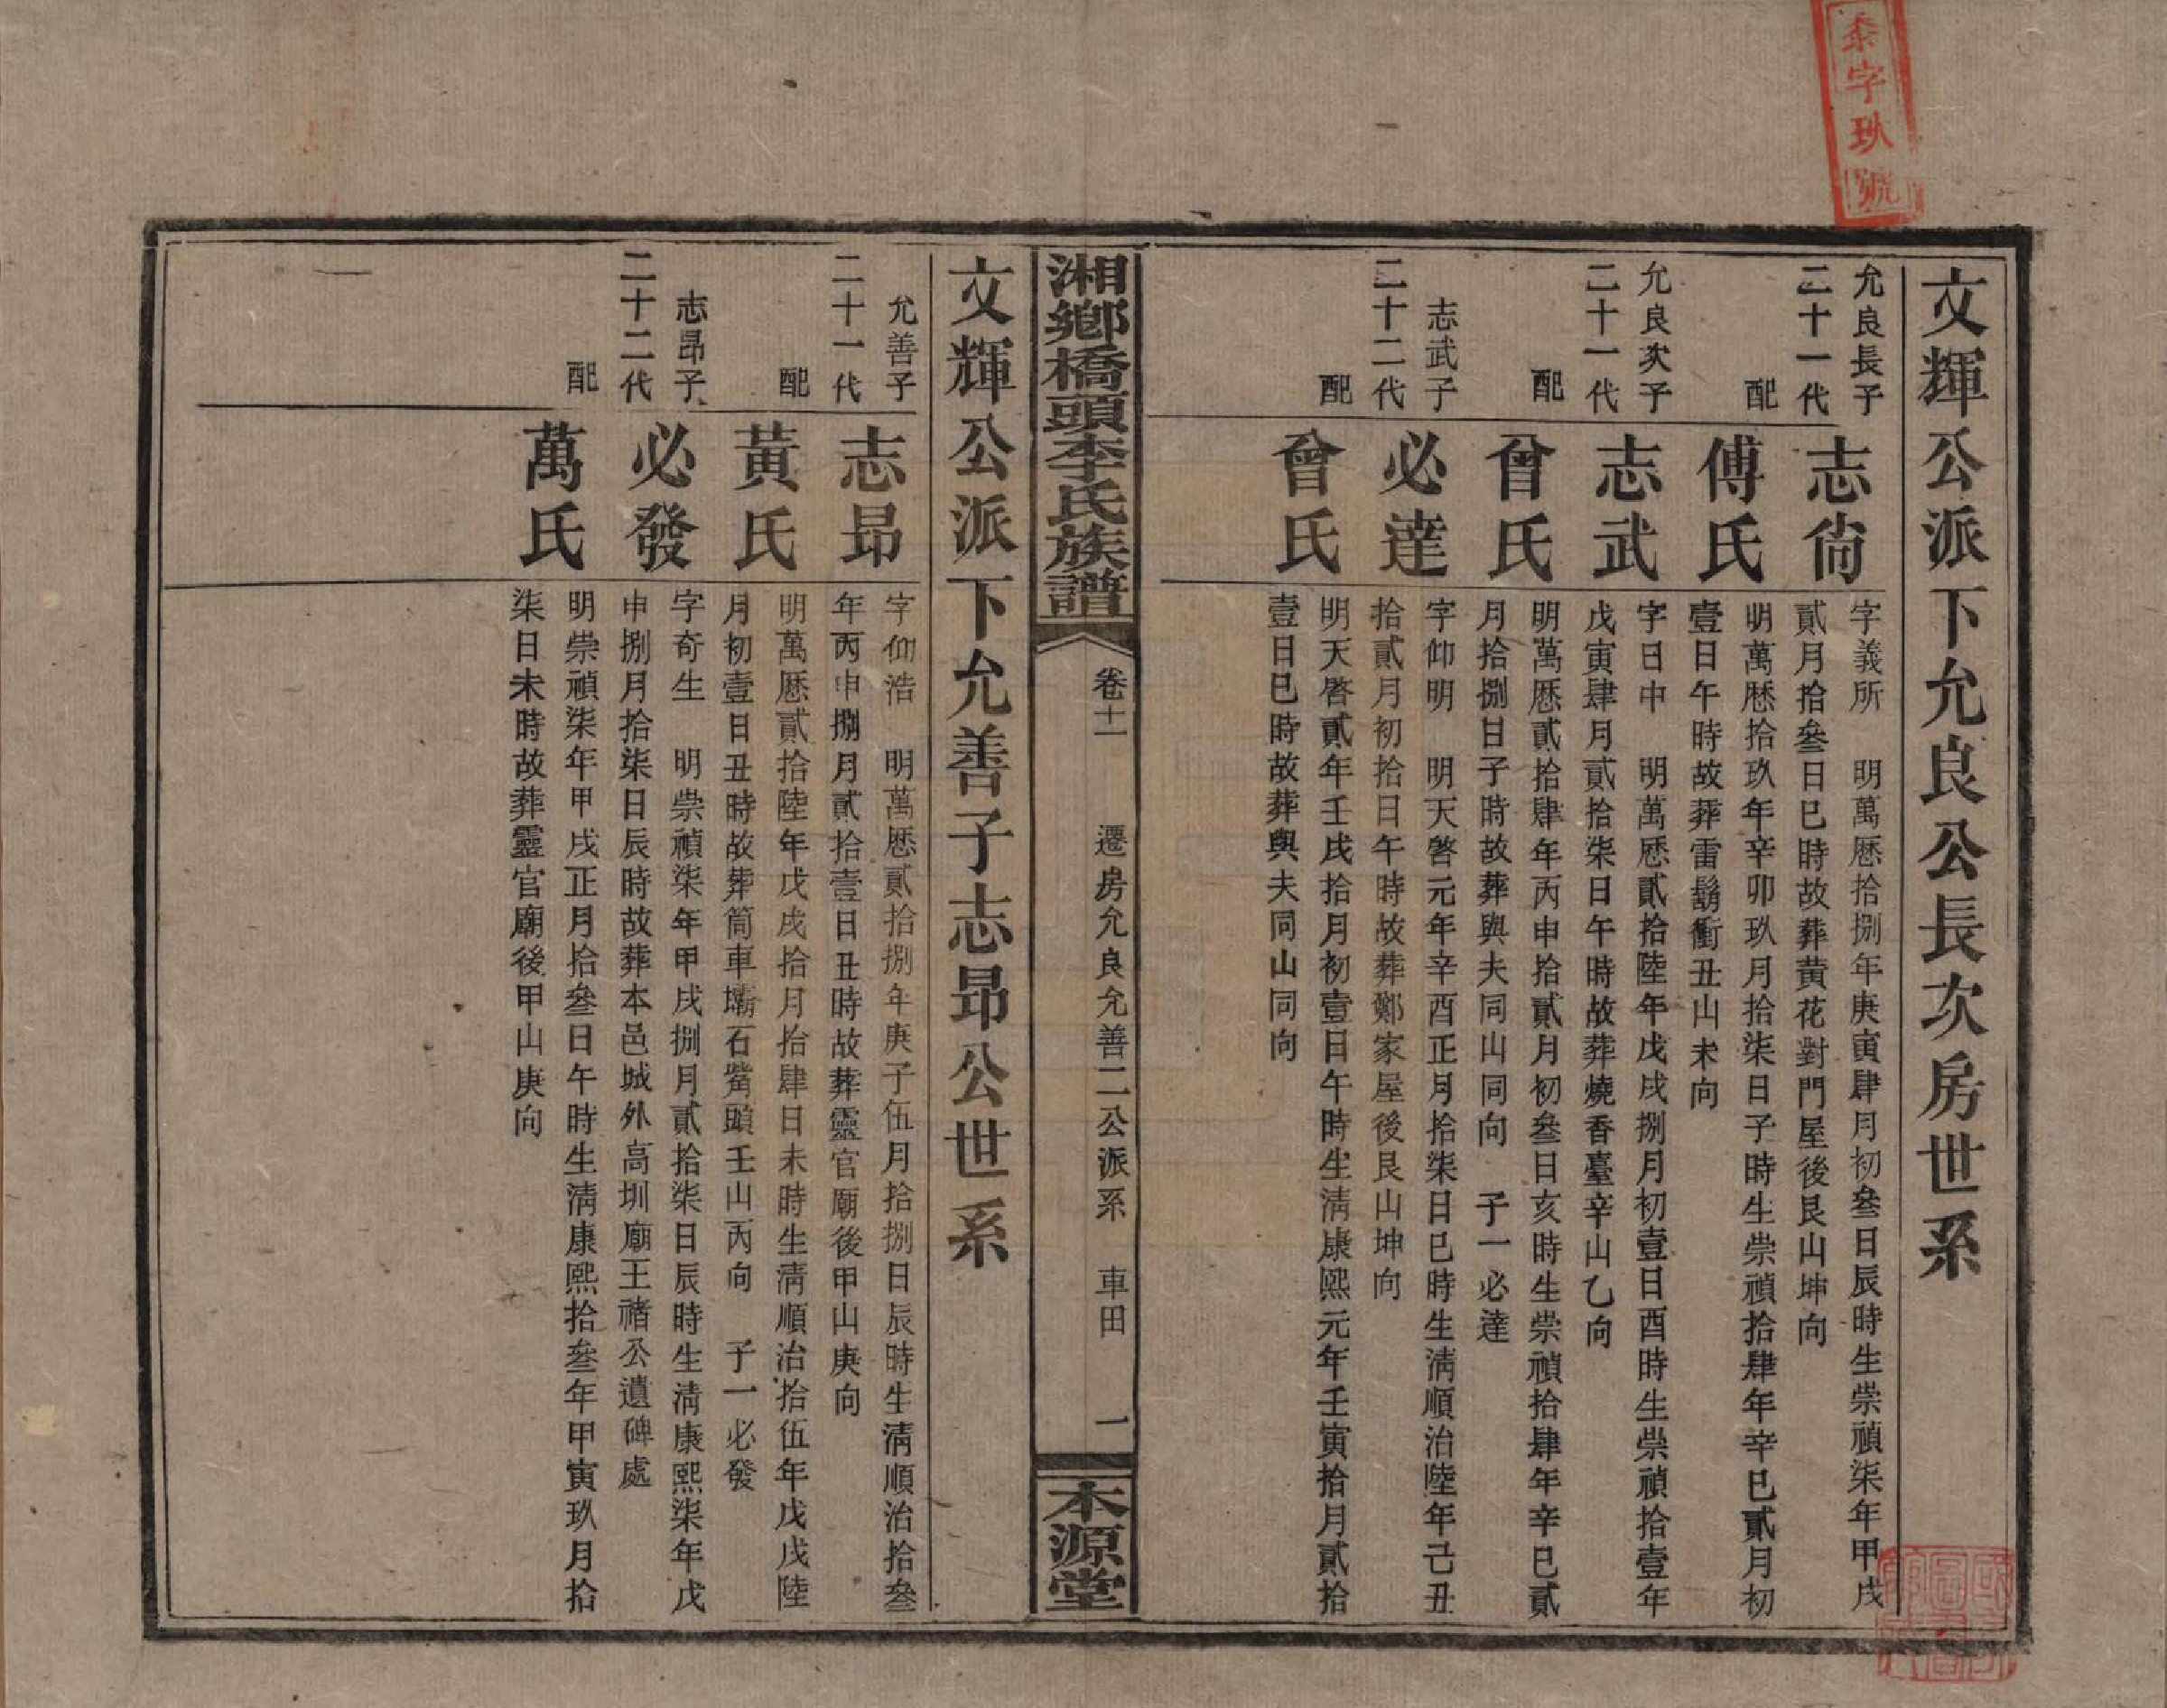 文輝公派下允良公長次房世系
允良長子
二十一代
志尙
字義所　明萬厯拾捌年庚寅肆月初叄日辰時生崇禎柒年甲戌
貳月拾叄日巳時故葬黃花對門屋後艮山坤向
配
傅氏
明萬厯拾玖年辛卯玖月拾柒日子時生崇禎拾肆年辛巳貳月初
壹日午時故葬雷鬍衝丑山未向
允良次子
二十一代
志武
字日中　明萬厯貳拾陸年戊戌捌月初壹日酉時生崇禎拾壹年
戊寅肆月貳拾柒日午時故葬燒香臺辛山乙向
配
曾氏
明萬厯貳拾肆年丙申拾貳月初叄日亥時生崇禎拾肆年辛巳貳
月拾捌日子時故葬與夫同山同向　子一必達
志武子
二十二代
必達
字仰明　明天啓元年辛酉正月拾柒日巳時生淸順治陸年己丑
拾貳月初拾日午時故葬鄭家屋後艮山坤向
配
曾氏
明天啓貳年壬戌拾月初壹日午時生淸康熙元年壬寅拾月貳拾
壹日巳時故葬與夫同山同向
湘鄉橋頭李氏族譜
卷十一　遷房允良允善二公派系　車田　一
本源堂
文輝公派下允善子志昂公世系
允善子
二十一代
志昂
字仰浩　明萬厯貳拾捌年庚子伍月拾捌日辰時生淸順治拾叄
年丙申捌月貳拾壹日丑時故葬靈官廟後甲山庚向
配
黃氏
明萬厯貳拾陸年戊戌拾月拾肆日未時生淸順治拾伍年戊戌陸
月初壹日丑時故葬筒車壩石觜頭壬山丙向　子一必發
志昂子
二十二代
必發
字奇生　明崇禎柒年甲戌捌月貳拾柒日辰時生淸康熙柒年戊
申捌月拾柒日辰時故葬本邑城外高圳廟王禇公遺碑處
配
萬氏
明崇禎柒年甲戌正月拾叄日午時生淸康熙拾叄年甲寅玖月拾
柒日未時故葬靈官廟後甲山庚向
字玖號